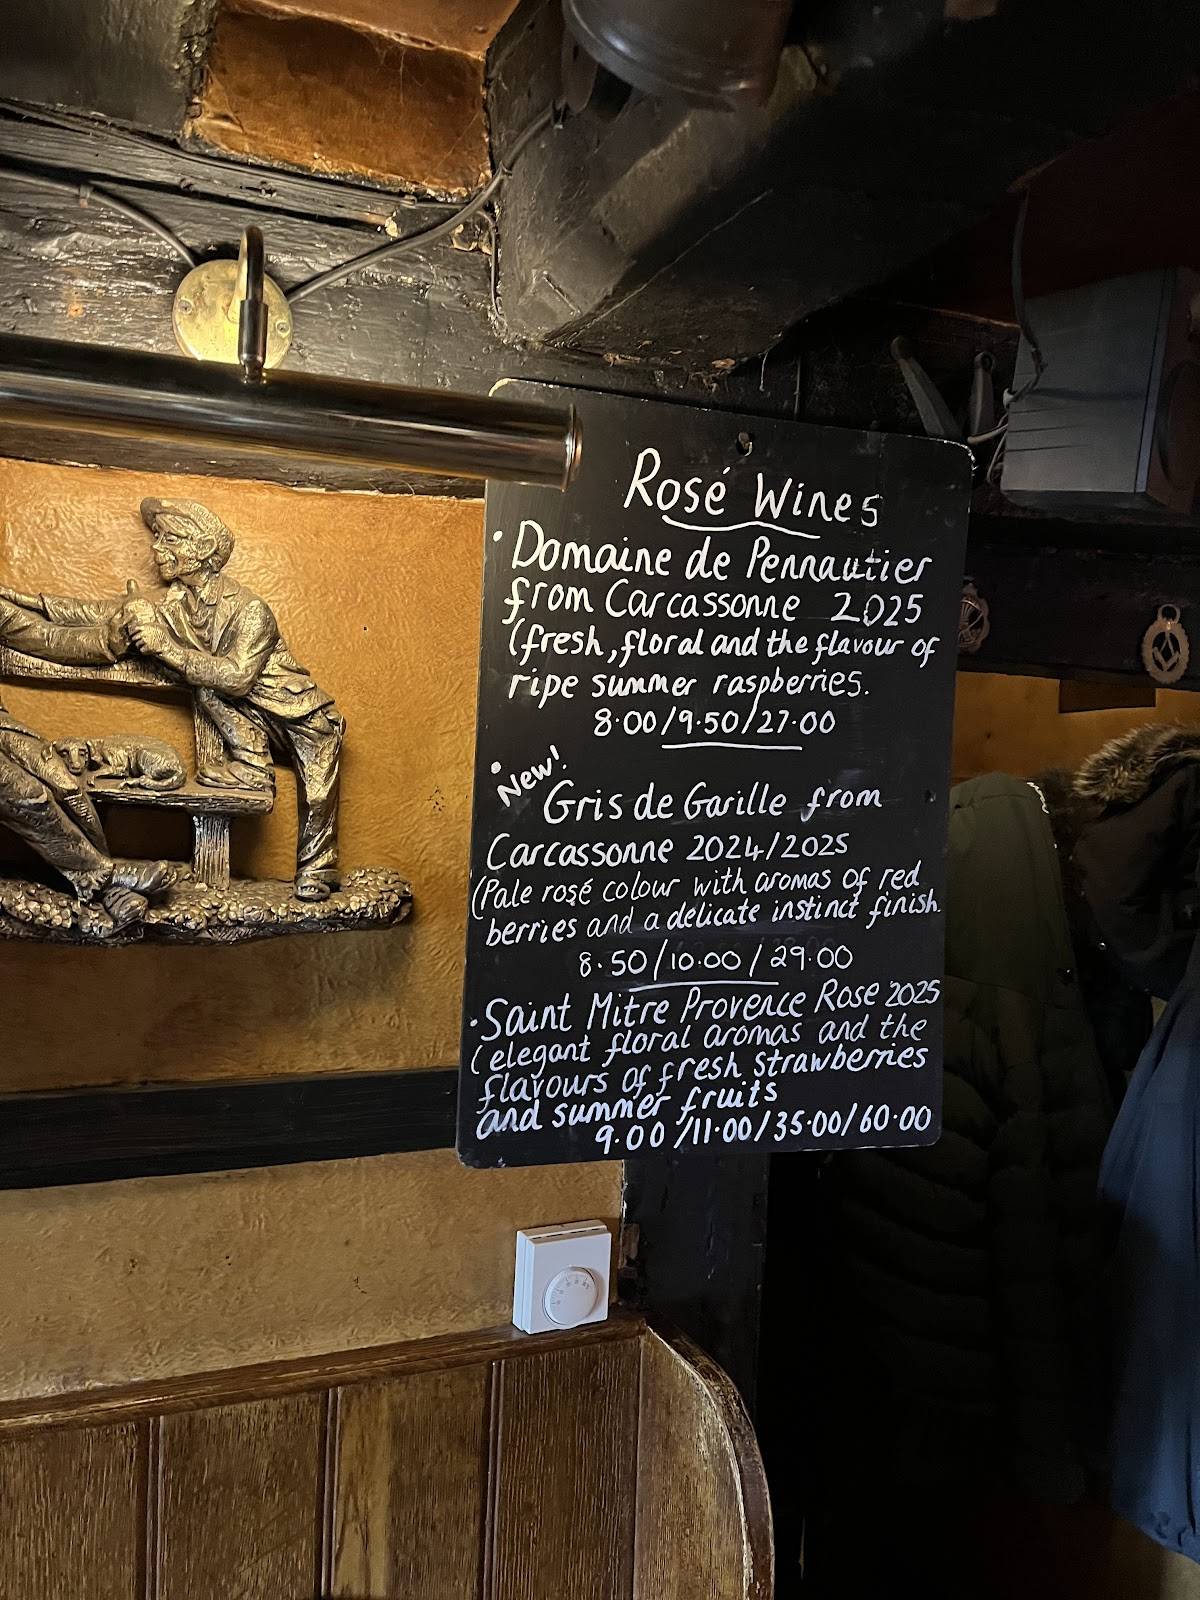 Rosé Wines
• Domaine de Pennautier
from Carcassonne 2025
(fresh, floral and the flavour of
ripe summer raspberries.
8.00/9.50/27.00
• New!
Gris de Garille from
Carcassonne 2024/2025
(Pale rosé colour with aromas of red
berries and a delicate instinct finish.
8.50/10.00/29.00
• Saint Mitre Provence Rose 2025
(elegant floral aromas and the
flavours of fresh strawberries
and summer fruits
9.00/11.00/35.00/60.00